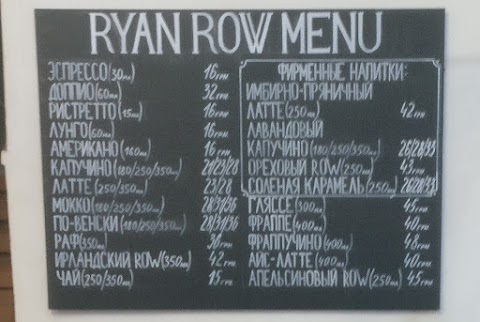 RYAN ROW MENU
ЭСПРЕССО(30мл) 16грн
ДОППИО(60мл) 32грн
РИСТРЕТТО(15мл) 16грн
ЛУНГО(60мл) 16грн
АМЕРИКАНО(160мл) 16грн
КАПУЧИНО(180/250/350мл) 21/23/28
ЛАТТЕ(250/350мл) 23/28
МОККО(180/250/350мл) 28/31/36
ПО-ВЕНСКИ(180/250/350мл) 28/31/36
РАФ(350мл) 36грн
ИРЛАНДСКИЙ ROW(350мл) 42грн
ЧАЙ(250/350мл) 15грн
ФИРМЕННЫЕ НАПИТКИ:
ИМБИРНО-ПРЯНИЧНЫЙ
ЛАТТЕ(250мл) 42грн
ЛАВАНДОВЫЙ
КАПУЧИНО(180/250/350мл) 26/28/33
ОРЕХОВЫЙ ROW(250мл) 43грн
СОЛЕНАЯ КАРАМЕЛЬ(250мл) 26/28/33
ГЛЯССЕ(300мл) 45грн
ФРАППЕ(400мл) 40грн
ФРАППУЧИНО(400мл) 48грн
АЙС-ЛАТТЕ(400мл) 40грн
АПЕЛЬСИНОВЫЙ ROW(250мл) 45грн